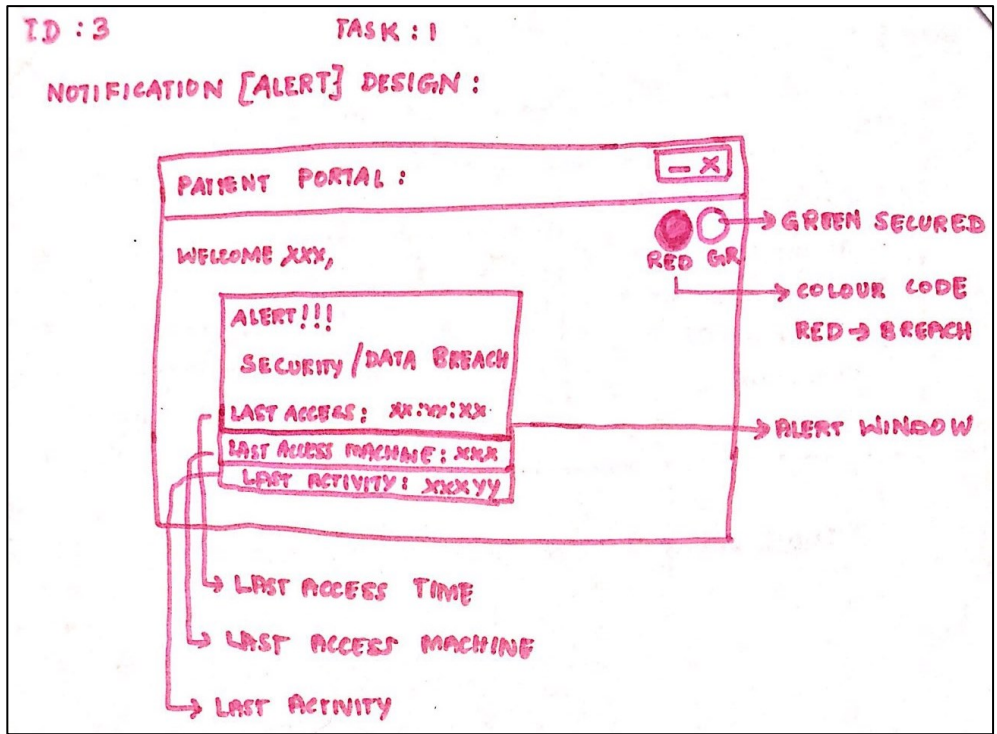 ID : 3 TASK : 1
NOTIFICATION [ALERT] DESIGN :
PATIENT PORTAL :
- X
WELCOME XXX,
RED GR
GREEN SECURED
COLOUR CODE
RED → BREACH
ALERT!!!
SECURITY / DATA BREACH
LAST ACCESS : XX:XX:XX
LAST ACCESS MACHINE : XXX
LAST ACTIVITY : XXXYY
ALERT WINDOW
LAST ACCESS TIME
LAST ACCESS MACHINE
LAST ACTIVITY